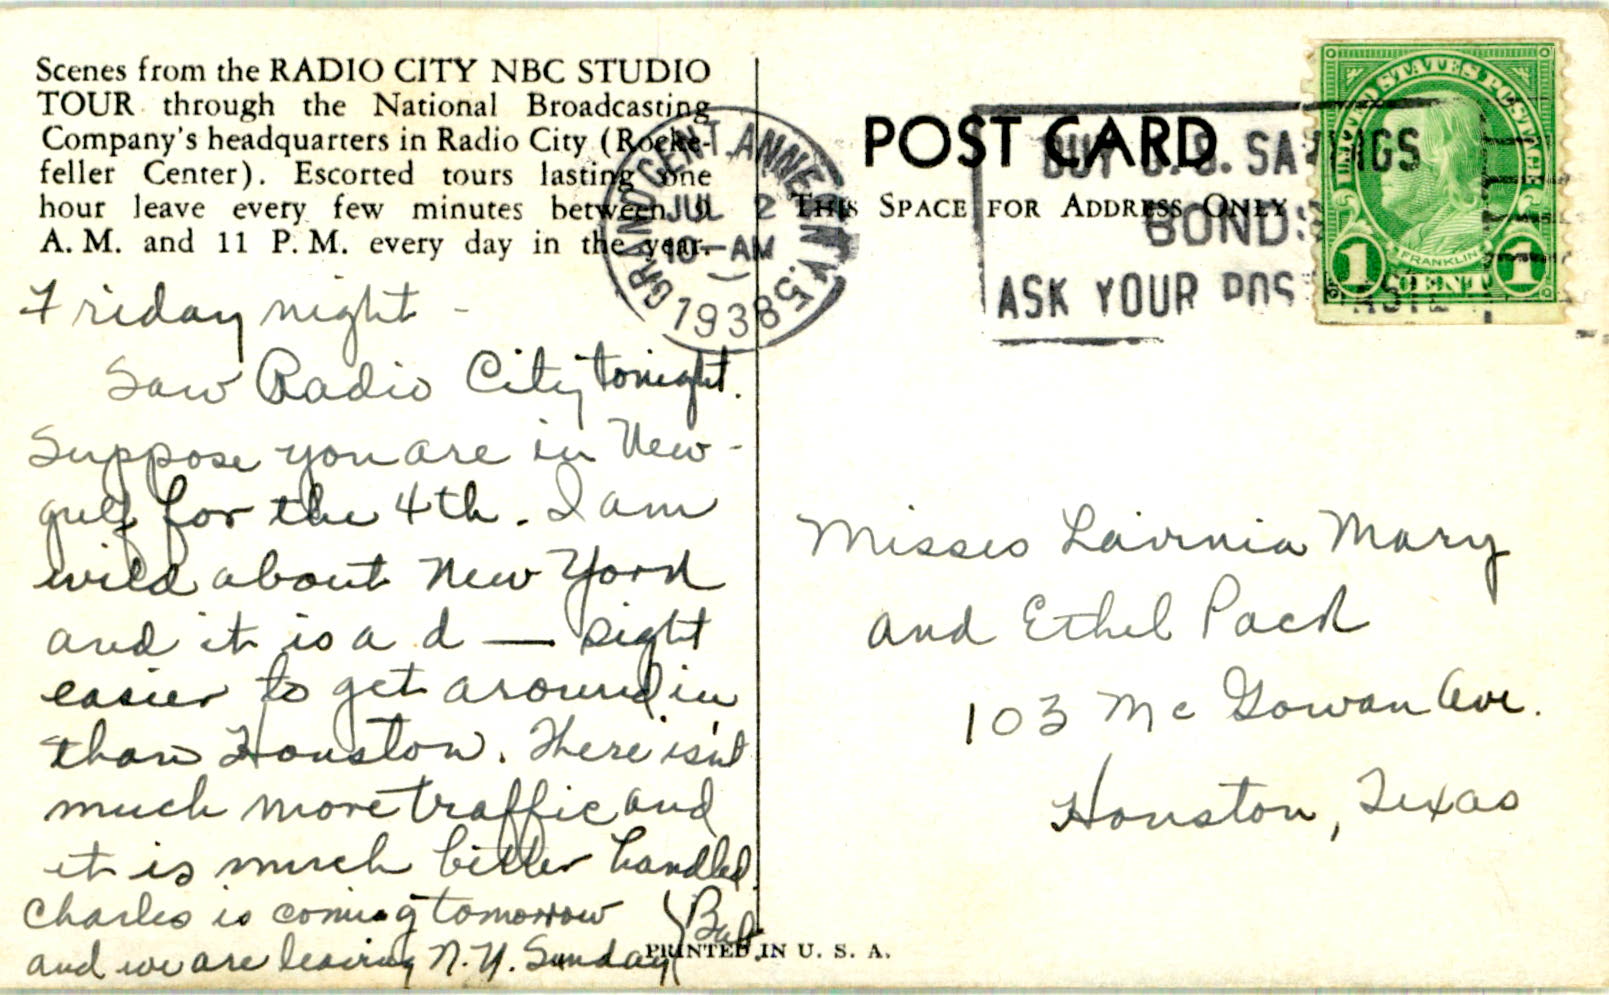 Scenes from the RADIO CITY NBC STUDIO
TOUR through the National Broadcasting
Company's headquarters in Radio City (Rocke-
feller Center). Escorted tours lasting one
hour leave every few minutes between 9
A. M. and 11 P. M. every day in the year.
Friday night -
Saw Radio City tonight.
Suppose you are in New-
gulf for the 4th. I am
wild about New York
and it is a d — sight
easier to get around in
than Houston. There isn't
much more traffic and
it is much better handled.
Charles is coming tomorrow
and we are leaving N.Y. Sunday
PRINTED IN U. S. A.
GRAND CENT. ANNEX N.Y. 5.
JUL 2
10-AM
1938
POST CARD
THIS SPACE FOR ADDRESS ONLY
BUY U.S. SAVINGS
BONDS
ASK YOUR POSTMASTER
UNITED STATES POSTAGE
FRANKLIN
1 CENT 1
Misses Lavinia Mary
and Ethel Pack
103 McGowan Ave.
Houston, Texas